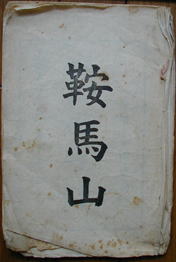 鞍馬山